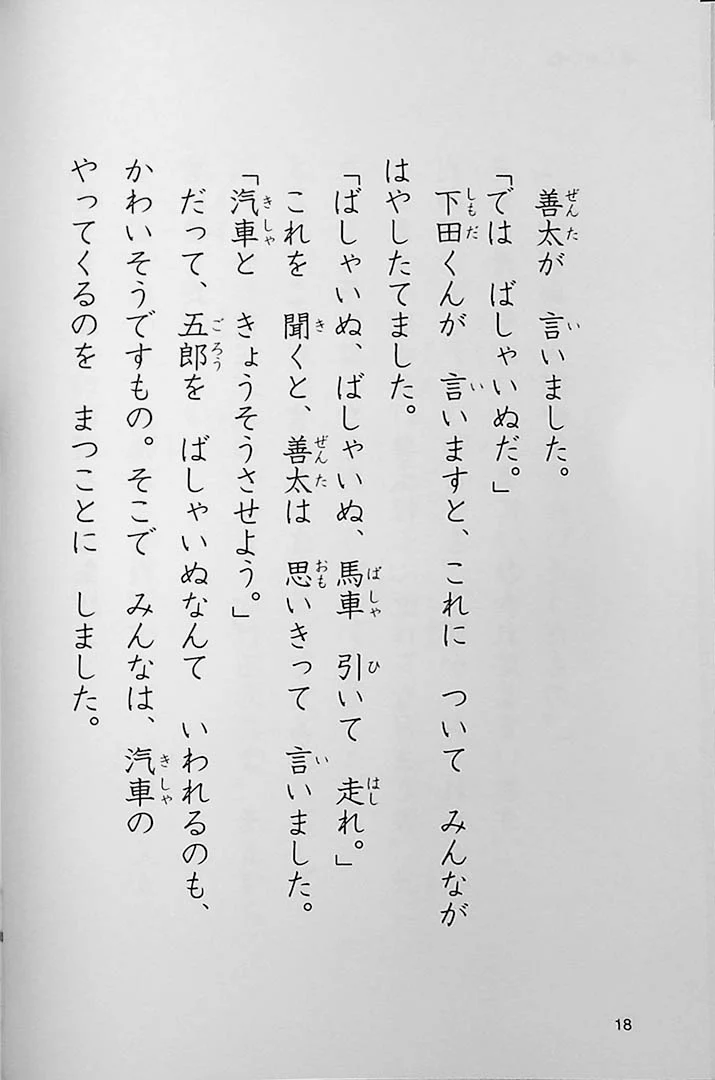 善太が　言いました。
「では　ばしゃいぬだ。」
下田くんが　言いますと、これに　ついて　みんなが
はやしたてました。
「ばしゃいぬ、ばしゃいぬ、馬車　引いて　走れ。」
これを　聞くと、善太は　思いきって　言いました。
「汽車と　きょうそうさせよう。」
だって、五郎を　ばしゃいぬなんて　いわれるのも、
かわいそうですもの。そこで　みんなは、汽車の
やってくるのを　まつことに　しました。
18